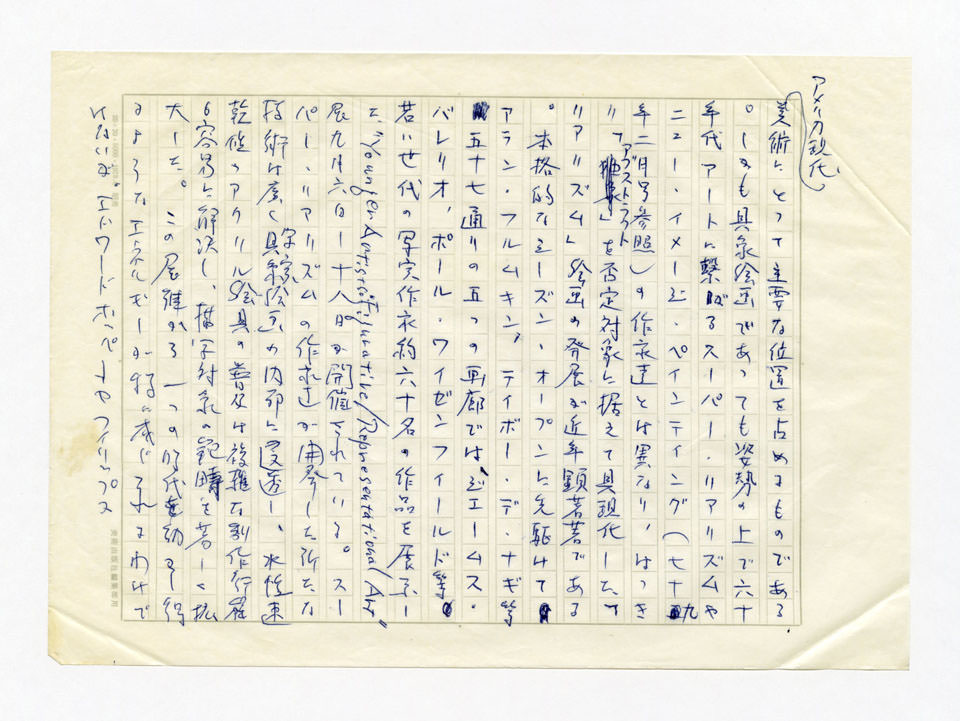 アメリカ現代
美術にとって主要な位置を占めるものである
。しかも具象絵画であっても姿勢の上で六十
年代アートに繋がるスーパー・リアリズムや
ニュー・イメージ・ペインティング(七十九
年二月号参照)の作家達とは異なり、はっき
り「アブストラクト」を否定対象に据えて具現化した「
リアリズム」絵画の発展が近年顕著である
。本格的なシーズン・オープンに先駆けて
アラン・フルムキン、ティボー・デ・ナギ等
五十七通りの五つの画廊では、ジェームス・
バレリオ、ポール・ワイゼンフィールド等
若い世代の写実作家約六十名の作品を展示し
た "Younger Artists: Figurative/Representational Art"
展九月六日ー十八日が開催されている。スー
パー・リアリズムの作家達が開発した所
技術は広く具象絵画の内部に浸透し、水性速
乾性のアクリル絵具の普及は複雑な制作行程
も容易に解決し、描写対象の範疇を著しく拡
大した。この展雑から一つの時代を劃する
ようなエネルギーが特に感じられるわけで
はないが、エドワード ホッパーやフィリップス